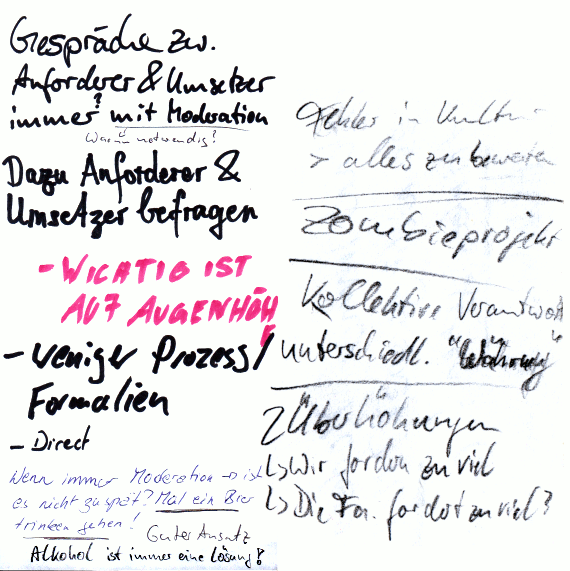 Gespräche zw.
Anforderer & Umsetzer
immer? mit Moderation
Wann notwendig?
Dazu Anforderer &
Umsetzer befragen
- WICHTIG IST
AUF AUGENHÖH
E
- weniger Prozess /
Formalien
- Direct
Wenn immer Moderation → ist
es nicht zu spät? Mal ein Bier
trinken gehen!
Guter Ansatz
Alkohol ist immer eine Lösung!?
Fehler in Kultur
> alles zu bewerten
Zombieprojekt
Kollektive Verantwort
unterschiedl. "Währung"
Überhöhungen
↳ Wir fordern zu viel
↳ Die Fa. fordert zu viel?